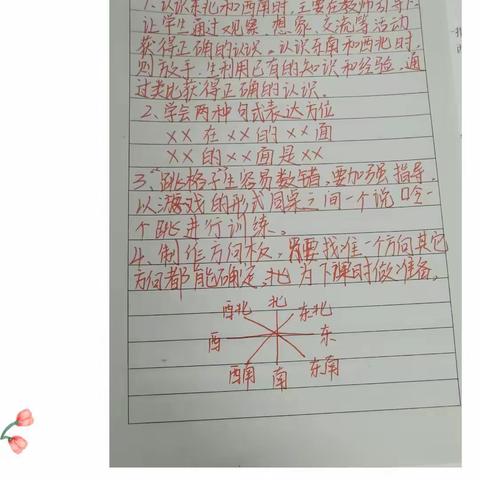 1、认识东北和西南时,主要在教师引导下
让学生通过观察、想象、交流等活动
获得正确的认识。认识东南和西北时,
则放手,生利用已有的知识和经验,通
过类比获得正确的认识。
2、学会两种句式表达方位
××在××的××面
××的××面是××
3、“跳格子”生容易数错,要加强指导,
以游戏的形式同桌之间一个说口令一
个跳进行训练。
4、制作方向板,只要找准一个方向其它
方向都能确定,也为下课时做准备。
西北 北 东北
西 东
西南 南 东南